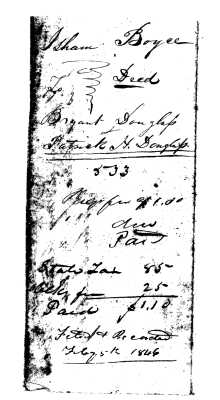 Isham Boyce
To Deed
Bryant Douglass
Patrick H. Douglass
533
Regs fee $1.00
due
Paid
State Tax 85
Clk fee 25
Paid $1.10
Filed & Recorded
Feby 5th 1846